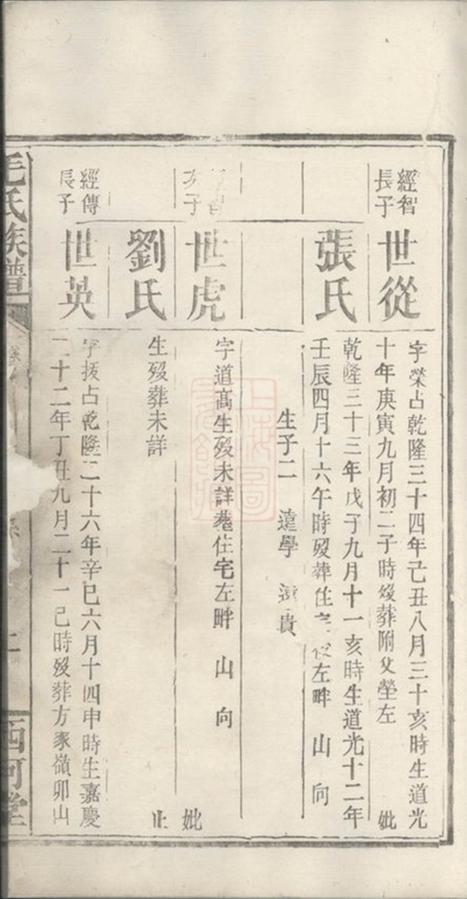 經智
長子
世從
字榮占乾隆三十四年己丑八月三十亥時生道光
十年庚寅九月初二子時歿葬附父塋左
妣
張氏
乾隆三十三年戊子九月十一亥時生道光十二年
壬辰四月十六午時歿葬住宅後左畔 山 向
生子二 遠學 遠貴
智
次子
世虎
字道高生歿未詳葬住宅左畔 山 向
妣
劉氏
生歿葬未詳
止
經傳
長子
世英
字拔占乾隆二十六年辛巳六月十四申時生嘉慶
二十二年丁丑九月二十一己時歿葬方家嶺卯山
毛氏族譜
西河堂